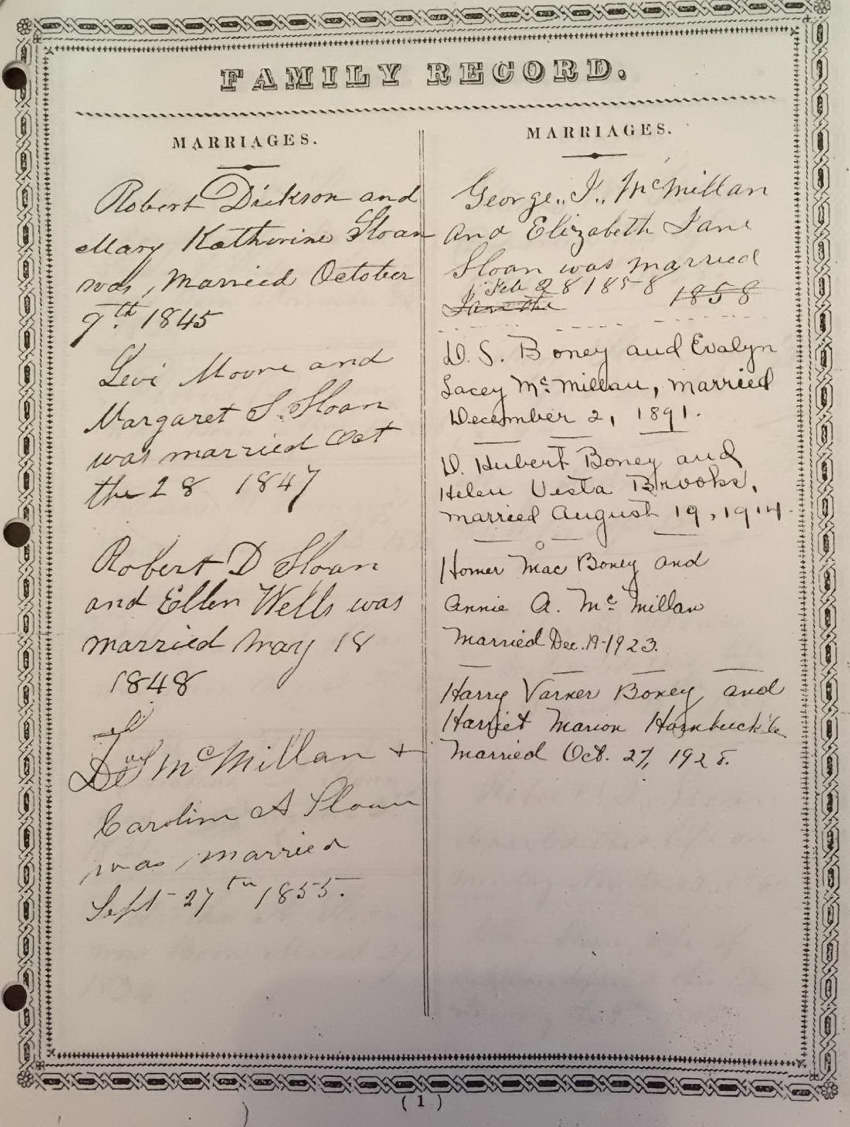 FAMILY RECORD.
MARRIAGES.
Robert Dickson and
Mary Katherine Sloan
was, married October
9th. 1845
Levi Moore and
Margaret S. Sloan
was married Oct
the 28 1847
Robert D Sloan
and Ellen Wells was
married May 18
1848
McMillan +
Caroline A Sloan
was, married
Sept 27th 1855.
MARRIAGES.
George. J. McMillan
and Elizabeth Jane
Sloan was married
Feb 28 1858 1858
D. S. Boney and Evalyn
Lacey McMillan, married
December 2, 1891.
D. Hubert Boney and
Helen Vesta Brooks,
married August 19, 1914.
Homer Mac Boney and
Annie A. McMillan
Married Dec. 19-1923.
Harry Varner Boney and
Harriet Marion Hornbuckle
Married Oct. 27, 1928.
( 1 )